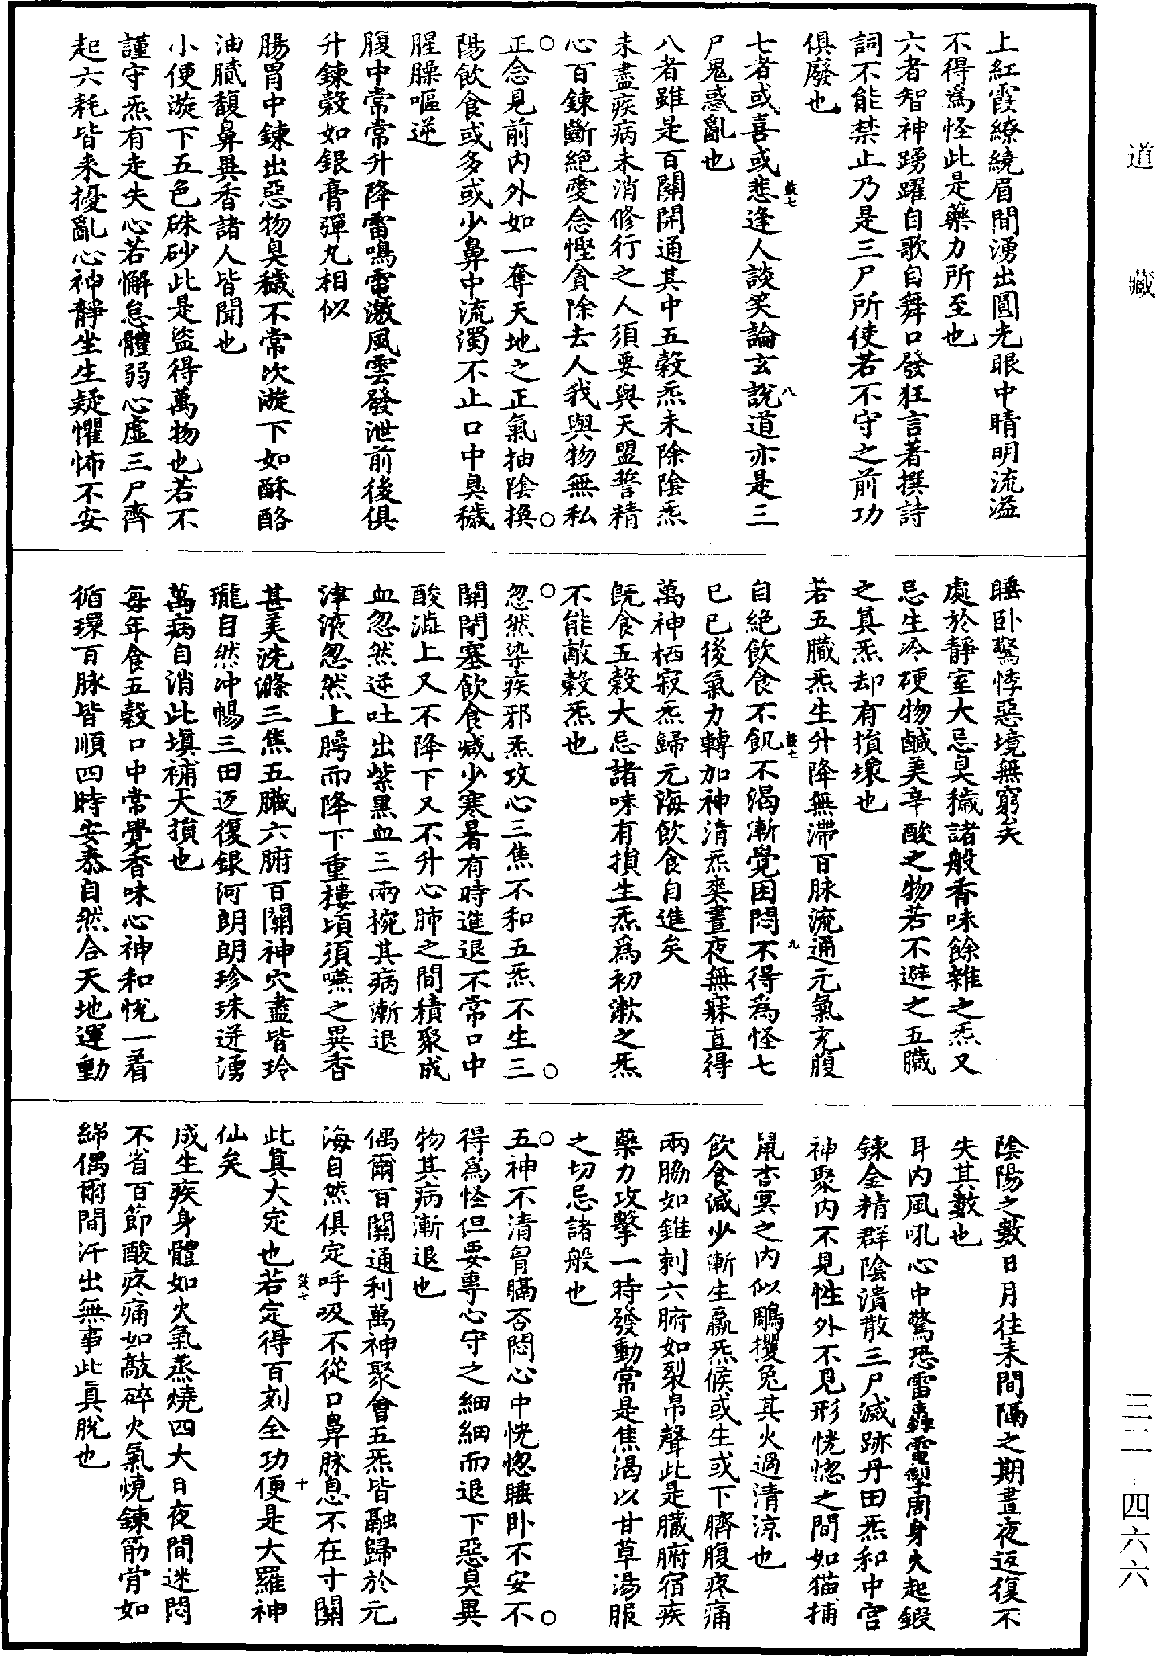 上紅霞繚繞眉間湧出圓光眼中睛明流溢
不得爲怪此是藥力所至也
六者智神踴躍自歌自舞口發狂言著撰詩
詞不能禁止乃是三尸所使若不守之前功
俱廢也
七者或喜或悲逢人談笑論玄說道亦是三
尸鬼惑亂也
八者雖是百關開通其中五穀炁未除陰炁
未盡疾病未消修行之人須要與天盟誓精
心百鍊斷絕愛念慳貪除去人我與物無私
正念見前内外如一奪天地之正氣抽陰換
陽飲食或多或少鼻中流濁不止口中臭穢
腥臊嘔逆
腹中常常升降雷鳴電激風雲發泄前後俱
升鍊穀如銀膏彈丸相似
腸胃中鍊出惡物臭穢不常次漩下如酥酪
油膩馥鼻異香諸人皆聞也
小便漩下五色硃砂此是盜得萬物也若不
謹守炁有走失心若懈怠體弱心虛三尸齊
起六耗皆来擾亂心神靜坐生疑懼怖不安
睡卧驚悸惡境無窮矣
處於靜室大忌臭穢諸般香味餘雜之炁又
忌生冷硬物鹹美辛酸之物若不避之五臟
之真炁却有損壞也
若五臟炁生升降無滯百脉流通元氣充腹
自絕飲食不飢不渴漸覺困悶不得爲怪七
已已後氣力轉加神清炁爽晝夜無寐直得
萬神栖寂炁歸元海飲食自進矣
既食五穀大忌諸味有損生炁爲初漱之炁
不能敵穀炁也
忽然染疾邪炁攻心三焦不和五炁不生三
關閉塞飲食減少寒暑有時進退不常口中
酸澁上又不降下又不升心肺之間積聚成
血忽然逆吐出紫黑血三兩椀其病漸退
津液忽然上腭而降下重樓頃須嚥之異香
甚美洗滌三焦五臟六腑百關神穴盡皆玲
瓏自然冲暢三田迈復銀河朗朗珍珠迸湧
萬病自消此塡補天損也
每年食五穀口中常覺香味心神和悅一着
循環百脉皆順四時安泰自然合天地運動
陰陽之數日月往来間隔之期晝夜返復不
失其數也
耳内風吼心中驚恐雷轟電掣周身火起鍛
鍊金精群陰潰散三尸滅跡丹田炁和中宮
神聚内不見性外不見形恍惚之間如猫捕
鼠杳冥之内似鵰攫兔其火過清涼也
飲食減少漸生羸炁候或生或下臍腹疼痛
兩脇如錐刺六腑如裂帛聲此是臟腑宿疾
藥力攻擊一時發動常是焦渴以甘草湯服
之切忌諸般也
五神不清胷膈否悶心中恍惚睡卧不安不
得爲怪但要專心守之細細而退下惡臭異
物其病漸退也
偶爾百關通利萬神聚會五炁皆融歸於元
海自然俱定呼吸不從口鼻脉息不在寸關
此真大定也若定得百刻全功便是大羅神
仙矣
成生疾身體如火氣蒸燒四大日夜間迷悶
不省百節酸疼痛如敲碎火氣燒鍊筋骨如
綿偶爾間汗出無事此真脫也
道藏
三二 四六六